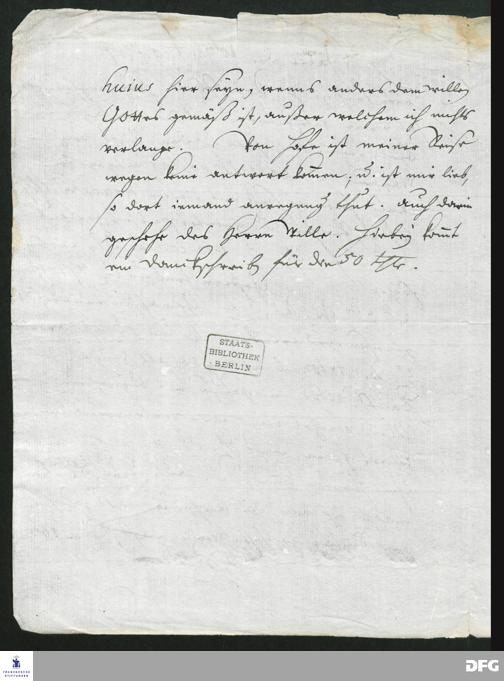 huius hier seyn, wenns anders dem willen
Gottes gemäß ist, außer welchem ich nichts
verlange. Von Hofe ist meiner Reise
wegen keine antwort kom̅en; u. ist mir lieb,
so dort iemand anregung thut. Auch darin
geschehe des Herrn Wille. Hiebey kom̅t
ein Danckschreiben für die 50 thlr.
STAATS-
BIBLIOTHEK
BERLIN
FRANCKESCHE
STIFTUNGEN
DFG